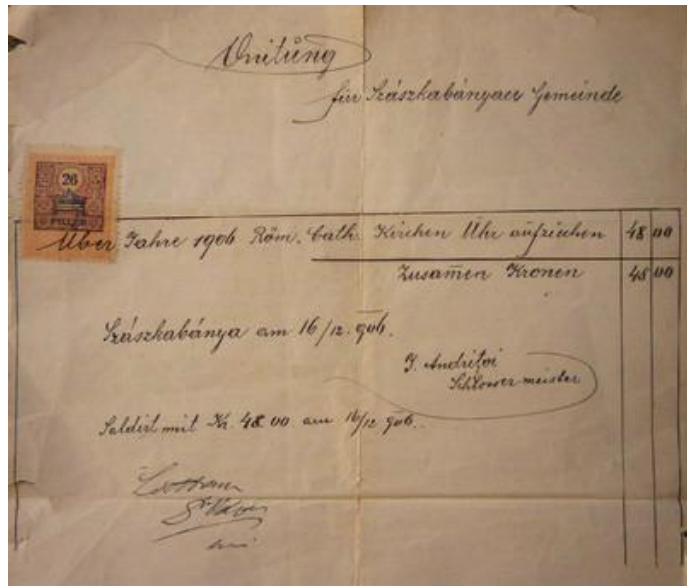 Quitung
für Szászkabányaer Gemeinde
26
FILLÉR
Über Jahre 1906 Röm. Cath. Kirchen Uhr aufziehen 48 00
Zusam̅en Kronen 48 00
Szászkabánya am 16/12. 906.
Schlossermeister
Saldirt mit Kr. 48.00 am 16/12 906.